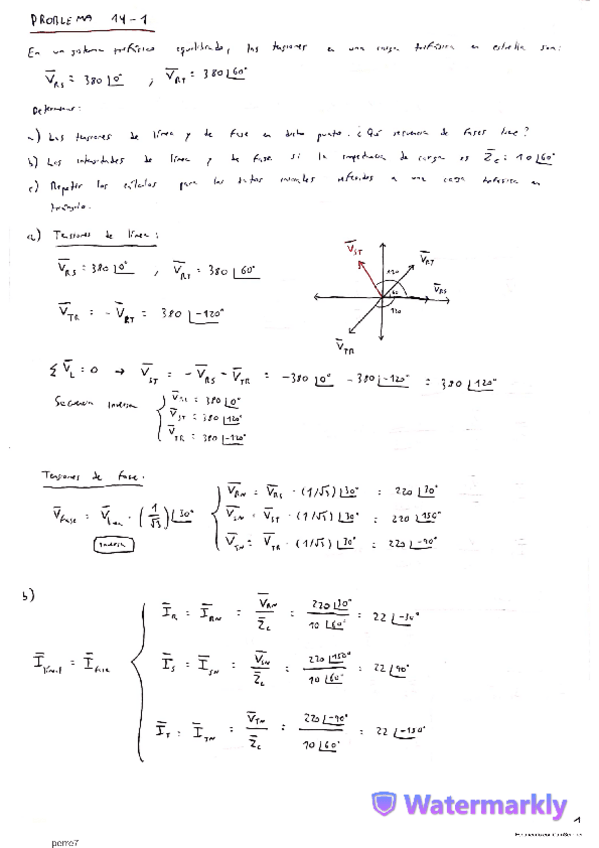 PROBLEMA 14-1
En un sistema trifásico equilibrado, las tensiones en una carga trifásica en estrella son:
V̄RS = 380∠0° , V̄RT = 380∠60°
Determinar:
a) Las tensiones de línea y de fase en dicho punto. ¿Qué secuencia de fases tiene?
b) Las intensidades de línea y de fase si la impedancia de carga es Z̄c = 10∠60°
c) Repetir los cálculos para los datos iniciales referidos a una carga trifásica en
triángulo.
a) Tensiones de línea:
V̄RS = 380∠0° , V̄RT = 380∠60°
V̄TR = -V̄RT = 380∠-120°
V̄ST
V̄RT
V̄RS
120
60
120
V̄TR
Σ V̄L = 0 → V̄ST = -V̄RS - V̄TR = -380∠0° - 380∠-120° = 380∠120°
Secuencia inversa { V̄RS = 380∠0°
V̄ST = 380∠120°
V̄TR = 380∠-120°
Tensiones de fase:
V̄fase = V̄línea · (1/√3)∠30°
inversa
V̄RN = V̄RS · (1/√3)∠30° = 220∠30°
V̄SN = V̄ST · (1/√3)∠30° = 220∠150°
V̄TN = V̄TR · (1/√3)∠30° = 220∠-90°
b)
Īlínea = Īfase
ĪR = ĪRN = V̄RN / Z̄c = 220∠30° / 10∠60° = 22∠-30°
ĪS = ĪSN = V̄SN / Z̄c = 220∠150° / 10∠60° = 22∠90°
ĪT = ĪTN = V̄TN / Z̄c = 220∠-90° / 10∠60° = 22∠-150°
Watermarkly
1
perre7